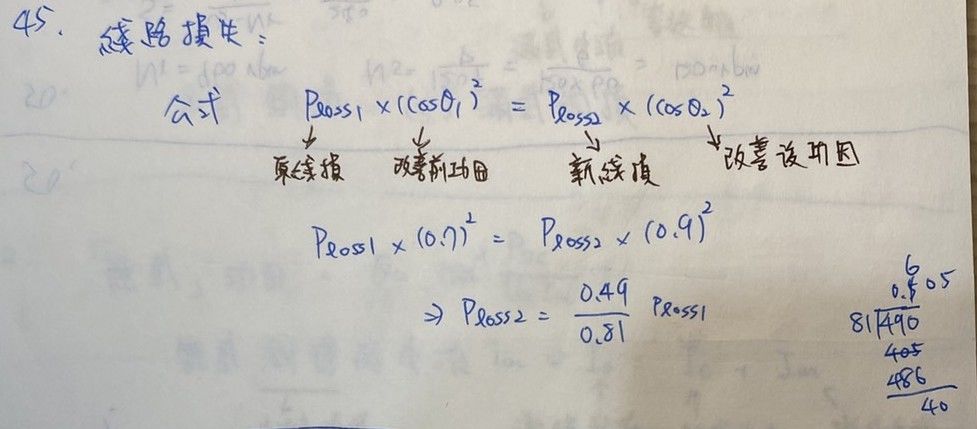 45. 綫路損失:
公式 Ploss1 × (cosθ1)² = Ploss2 × (cosθ2)²
原綫損 改善前功因 新綫損 改善後功因
Ploss1 × (0.7)² = Ploss2 × (0.9)²
⇒ Ploss2 = 0.49/0.81 Ploss1
6
0. 05
81 490
405
486
40